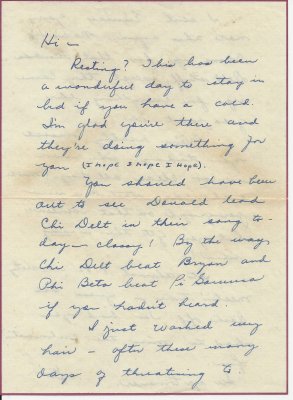 Hi —
Resting? This has been
a wonderful day to stay in
bed if you have a cold.
I'm glad you're there and
they're doing something for
you (I HOPE I HOPE I HOPE).
You should have been
out to see Donald lead
Chi Delt in their song to-
day — classy! By the way,
Chi Delt beat Bryan and
Phi Beta beat Pi Gamma
if you hadn't heard.
I just washed my
hair — after these many
days of threatning to